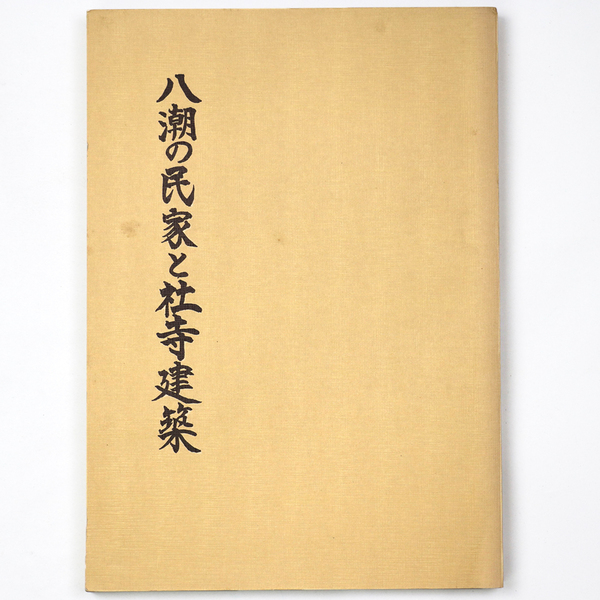 八潮の民家と社寺建築